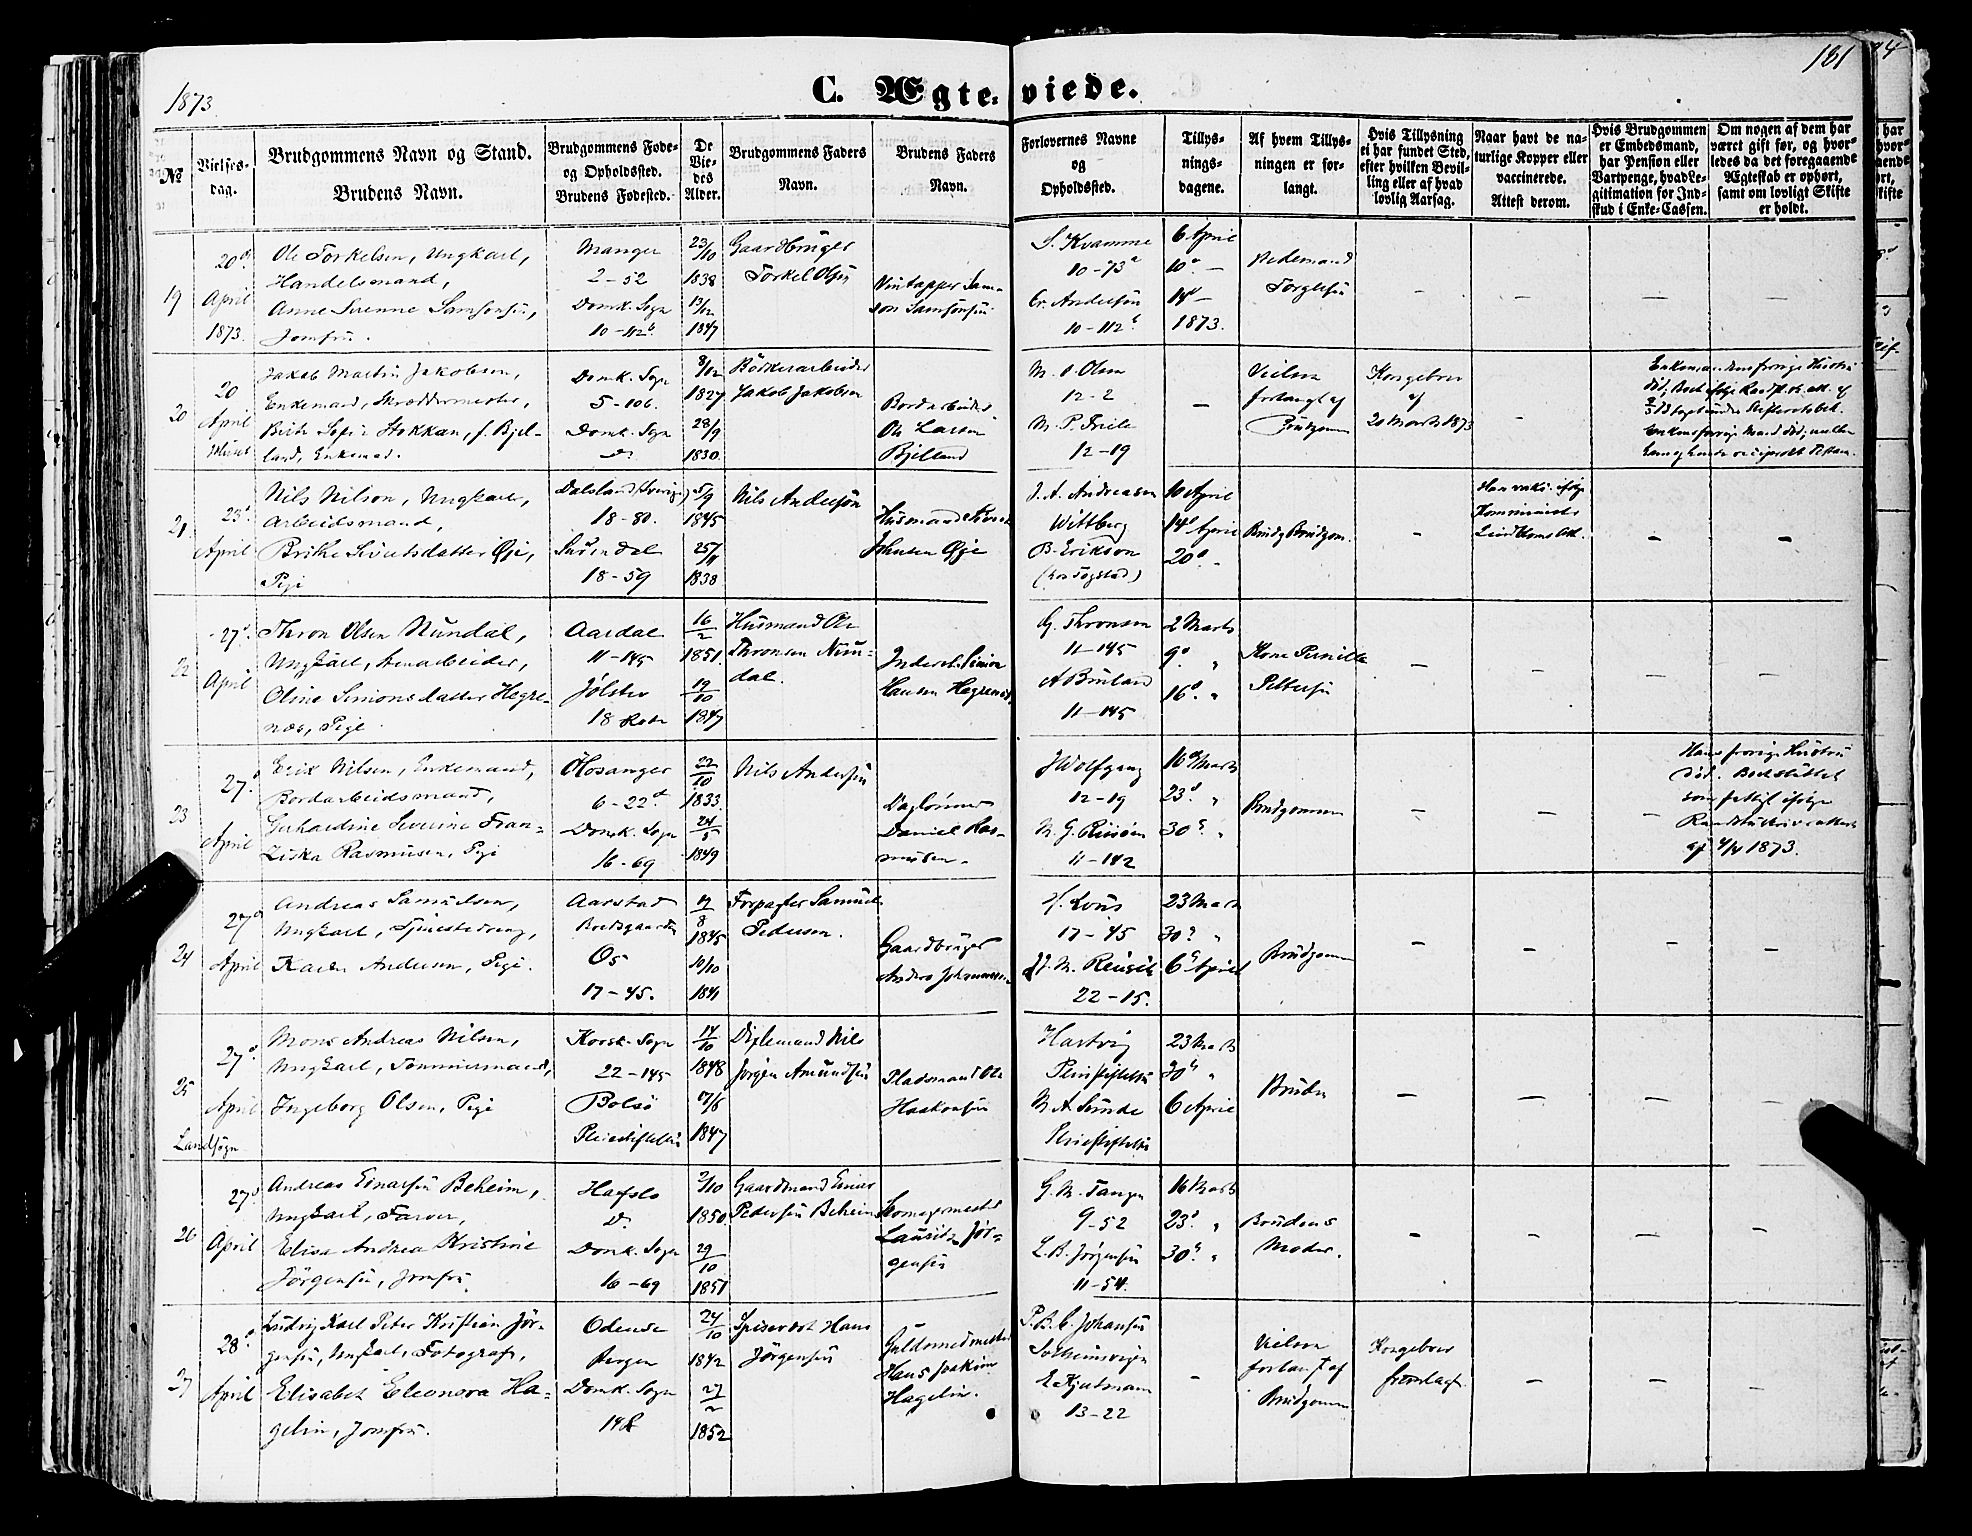 1873
C. Ægte-viede.
161
№
Vielses-
dag.
Brudgommens Navn og Stand.
Brudens Navn.
Brudgommens Føde-
og Opholdssted.
Brudens Fødested.
De
Vie-
des
Alder.
Brudgommens Faders
Navn.
Brudens Faders
Navn.
Forlovernes Navne
og
Opholdssted.
Tillys-
nings-
dagene.
Af hvem Tillys-
ningen er for-
langt.
Hvis Tillysning
ei har fundet Sted,
efter hvilken Bevil-
ling eller af hvad
lovlig Aarsag.
Naar havt de na-
turlige Kopper eller
vaccinerede.
Attest derom.
Hvis Brudgommen
er Embedsmand,
har Pension eller
Vartpenge, hvad Le-
gitimation for Ind-
skud i Enke-Cassen.
Om nogen af dem har
været gift før, og hvor-
ledes da det foregaaende
Ægteskab er ophørt,
samt om lovligt Skifte
er holdt.
19
20d
April
1873.
Ole Torkelsen, Ungkarl,
Handelsmand,
Anne Serenne Samsonsen,
Jomfru.
Manger
2-52
Domk. Sogn
10-112b
23/10
1838
13/12
1847
Gaardbruger
Torkel Olsen
Vintapper Sam-
son Samsonsen
S. Kvamme
10-73a
Cr. Andersen
10-112b
6 April
10d —
14d —
1873.
20
20
April
Jakob Martin Jakobsen,
Enkemand, Skræddermester,
Stokkan, f. Bjel-
land, Enkemad.
Domk. Sogn
5-106.
Domk. Sogn
D
8/12
1827
28/9
1830
Bödkerarbeider
Jakob Jakobsen
Ole Larsen
Bjelland
M. O. Olsen
12-2
M. P. Friele
12-19
Vielsen
forlangt af
Brudgom
Kongebrev
af
20 Marts 1873
21
23d
April
Nils Nilson, Ungkarl,
Arbeidsmand,
Brithe Siversdatter Øje,
Pige
Dalsland (Sverige)
18-80.
Surendal
18-59
5/9
1845
25/11
1838
Nils Andersson
Husmand Siver
Johnsen Øje
J. A. Andreasen
Wittberg
B. Erikson
10 April
14d April
20d "
Brudgommen
22
27d
April
Thron Olsen Nundal,
Ungkarl, Arbeider,
Oline Simonsdatter Hegre-
næs, Pige
Aardal
11-145
Jølster
18
16/2
1851.
19/10
1847
Husmand Ole
Thronsen Nun-
dal.
Inderst Simon
Hansen Hegrenæs
G. Thronsen
11-145
A Bruland
11-145
2 Marts
9d "
16d "
Kone Pernille
Pettersen
23
27d
April
Erik Nilsen, Enkemand,
Bordarbeidsmand,
Gerhardine Severine Fran-
ziska Rasmusen, Pige
Hosanger
6-22d
Domk. Sogn
16-69
22/10
1833.
24/5
1849
Nils Andersen
Daglönner
Daniel Ras-
musen.
J Wolfgang
12-19
11-142
16d Marts
23d "
30d "
Brudgommen
Hans forrige Hustru
død.
af 4/4 1873.
24
27d
April
Andreas Samuelsen,
Ungkarl, Tjenestedreng,
Karen Andersen, Pige.
Aarstad
Os
17-45.
8
1845
10/10
1841
Forpagter Samuel
Pedersen.
Gaardbruger
Anders Johannesen
17-45
22-15.
23 Marts
30d "
6d April
Brudgommen
25
27d
April
Landsogn
Mons Andreas Nilsen,
Ungkarl, Tømmermand,
Ingeborg Olsen, Pige
Korsk. Sogn
22-145
Bolsö
Pleiestiftelsen
14/10
1848
17/6
1847
Nils
Jörgen Amundsen
Pladsmand Ole
Haakonsen
Hartvig
Pleiestiftelsen
M. A. Sunde
Pleiestiftelsen
23 Marts
30d "
6 April
Bruden
26
27d
April
Andreas Einarsen Beheim,
Ungkarl, Farver,
Elisa Andrea Kristine
Jörgensen, Jomfru.
Hafslo
D.
Domk. Sogn
16-69
2/10
1850.
29/10
1851
Gaardmand Einar
Pedersen Beheim
Skomagermester
Lauritz Jör-
gensen
G. M. Tangen
9-52
L. B. Jörgensen
11-54.
16 Marts
23d "
30d "
Brudens
Moder.
27
28d
April
Ludvig Karl Peter Kristian Jör-
gensen, Ungkarl, Fotograf,
Elisabet Eleonora Ha-
gelin, Jomfru.
Odense
Bergen
Domk. Sogn
24/10
1842
27/2
1852
Spisevært Hans
Jörgensen
Guldsmedmester
Hans Joakim
Hagelin.
P. B. C. Johansen
Solheimsvigen
13-22
Vielsen
forlangt af
Brudgommen
Kongebrev
fremlagt.